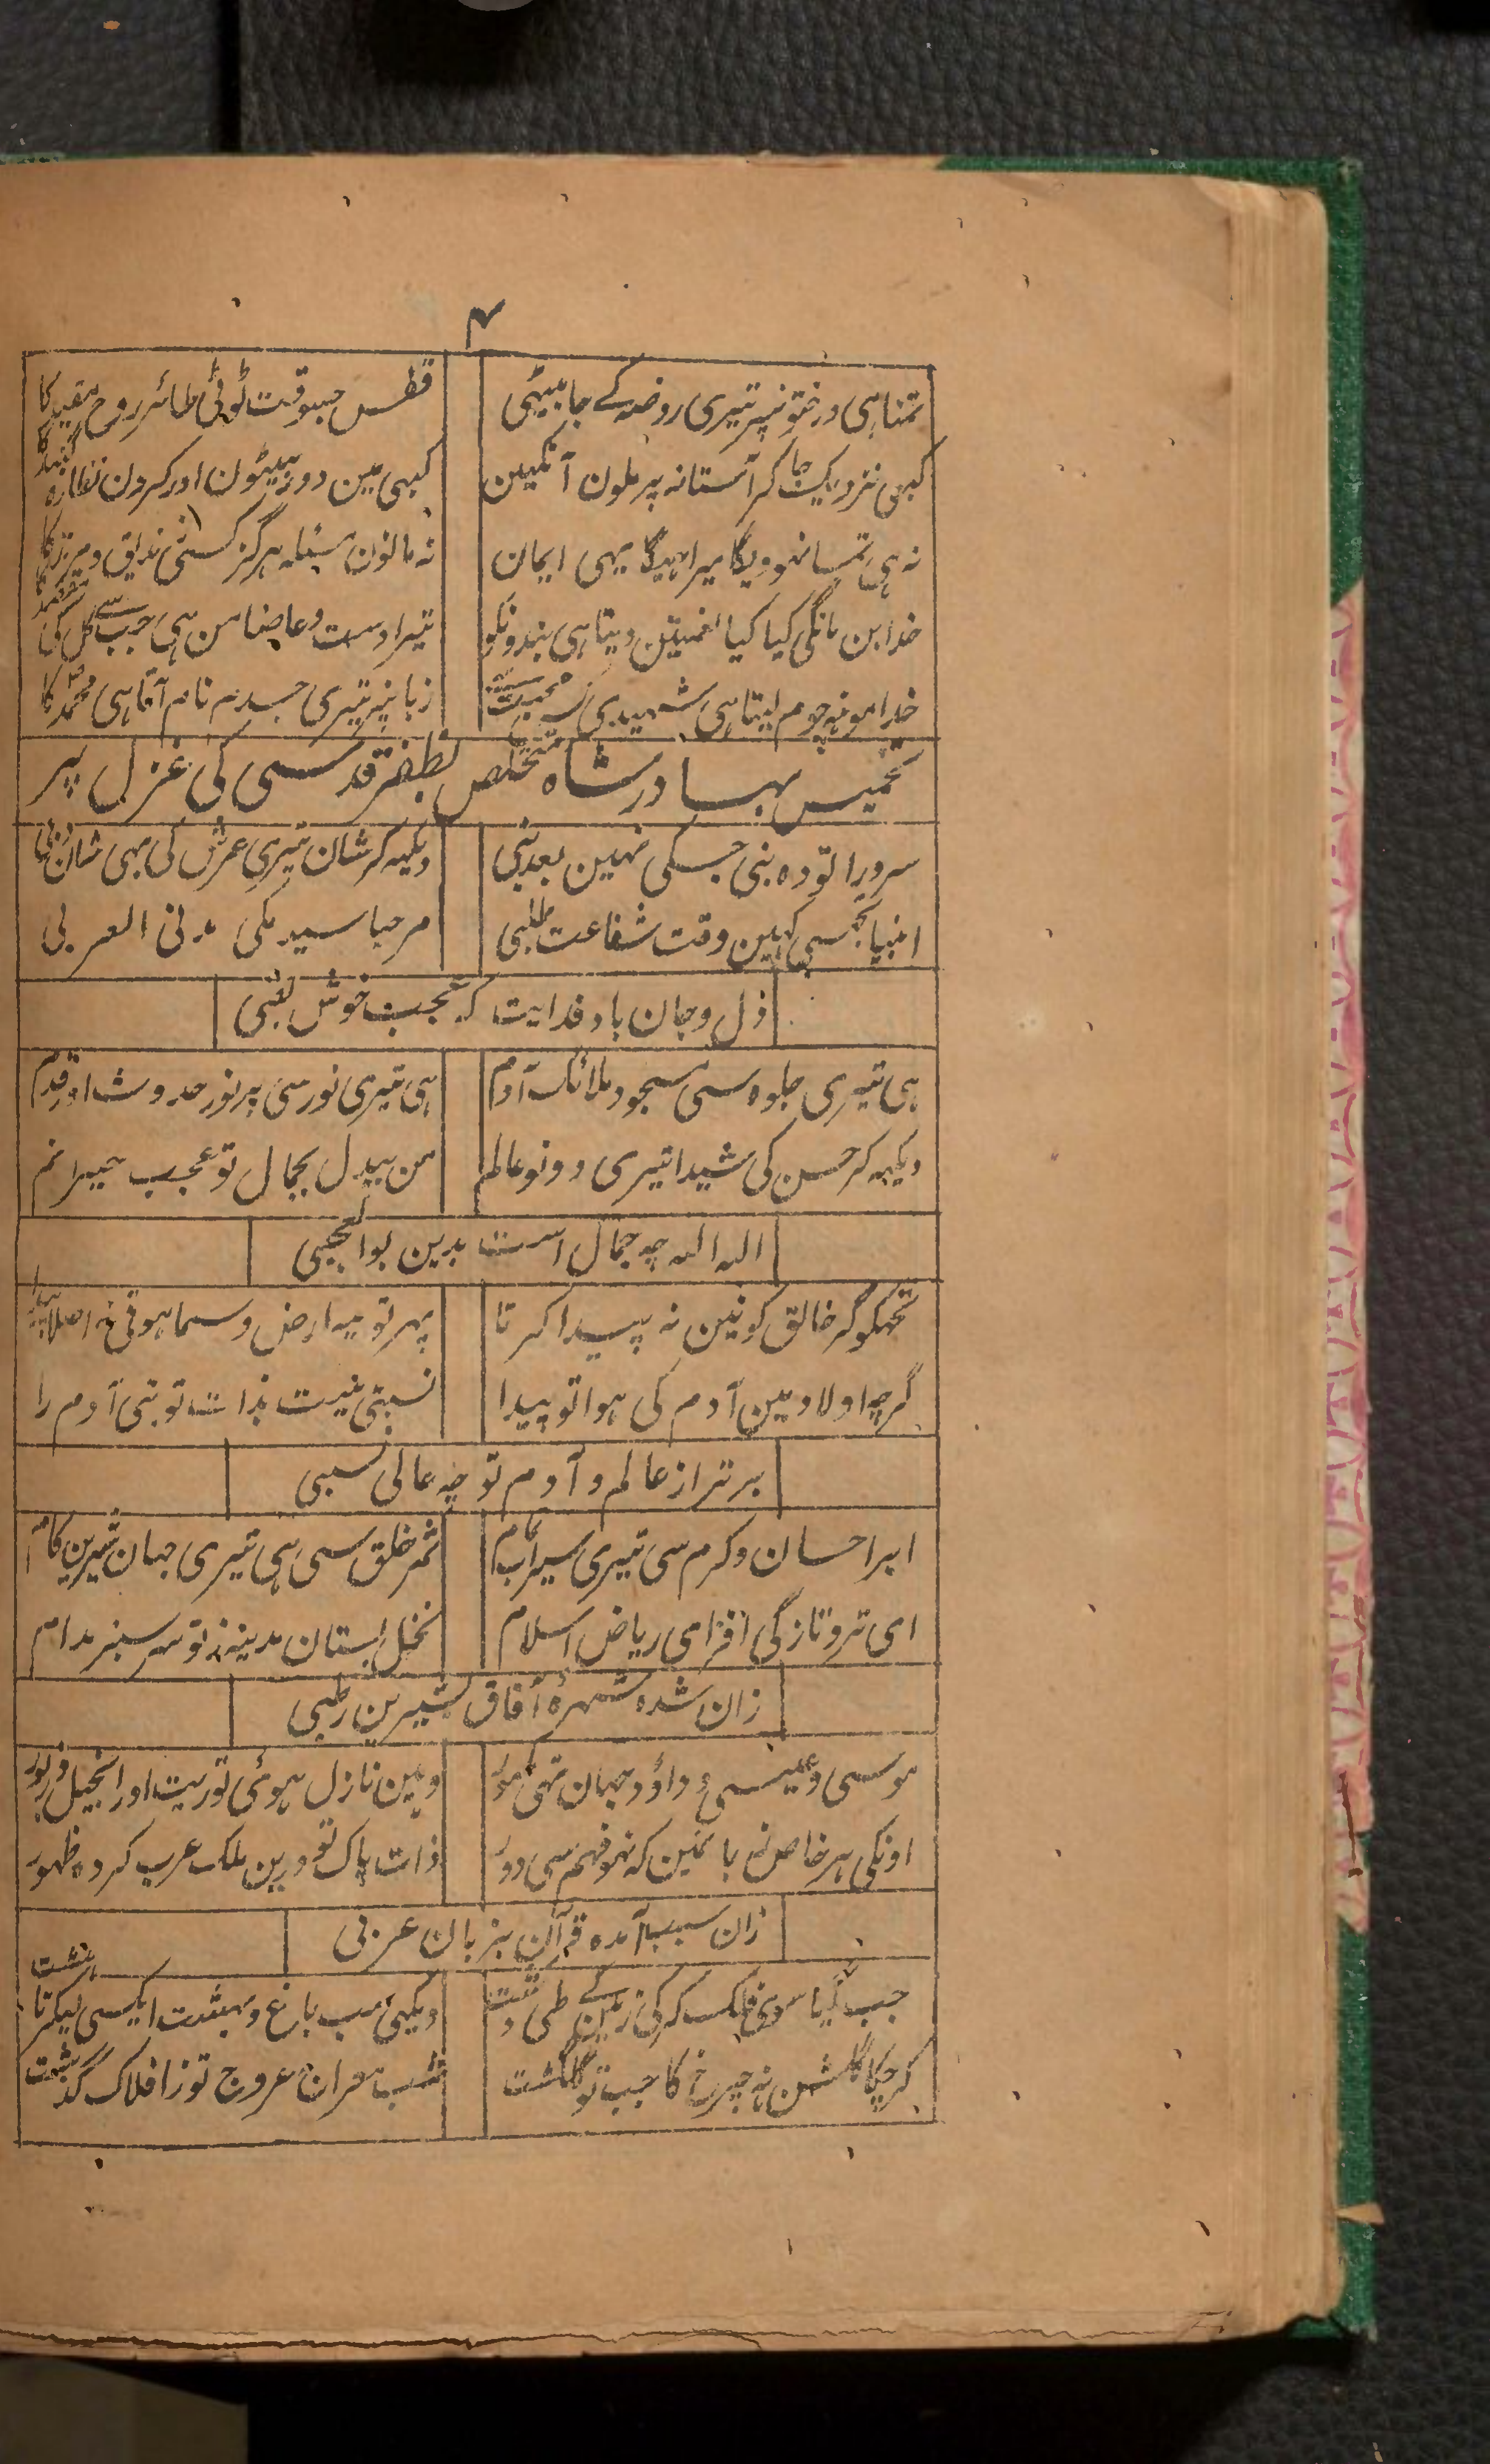 ۴
تمنا ہی درختونپر تیری روضہ کے جا بیٹھی
قفس جسوقت ٹوٹی طائر روح مقید کا
کبہی نزدیک جا کر آستانہ پر ملون آنکہین
کبہی مین دور بیٹون اور کرون نظارہ گنبد کا
نہ ہی تمسا نہوویگا میرا ہیگا یہی ایمان
نہ مانون مسئلہ ہرگز کسی زندیق و مرتد کا
خدا بن مانگی کیا کیا نعمتین دیتا ہی بندونکو
تیرا دست دعا ضامن ہی جب سے کل کی مقصد کا
خدا مونہہ چوم لیتا ہی شہیدی کس محبت سے
زبانپر تیری جسدم نام آتا ہی محمد کا
تخمیس بہادر شاہ متخلص بظفر قدسی کی غزل پر
سرورا تو وہ نبی جسکی نہین بعد نبی
دیکہہ کر شان تیری عرش کی بہی شان دبی
انبیا تجہسی کہین وقت شفاعت طلبی
مرحبا سید مکی مدنی العربی
دل و جان باد فدایت کہ عجب خوش لقبی
ہی تیری جلوہ سی مسجود ملائک آدم
ہی تیری نور سی پر نور حدوث اور قدم
دیکہہ کر حسن کی شیدا تیری دونو عالم
من بیدل بجمال تو عجب حیرانم
اللہ اللہ چہ جمال است بدین بوالعجبی
تجہکو گر خالق کونین نہ پیدا کرتا
پہر تو یہ ارض و سما ہوتی نہ اصلا پیدا
گرچہ اولاد مین آدم کی ہوا تو پیدا
نسبتی نیست بذات تو بنی آدم را
برتر از عالم و آدم تو چہ عالی نسبی
ابر احسان و کرم سی تیری سیراب تمام
ثمر خلق سی ہی تیری جہان شیرین کام
ای تر و تازگی افزای ریاض اسلام
نخل بستان مدینہ ز تو سر سبز مدام
زان شدہ شہرۂ آفاق بشیرین رطبی
موسی و عیسی و داؤد جہان تہی
وہین نازل ہوئی توریت اور انجیل و زبور
اونکی ہر خاص نی با کہ نہو فہم سی دور
ذات پاک تو درین ملک عرب کردہ ظہور
زان سبب آمدہ قرآن بزبان عربی
جب گیا سوی فلک کرکی زمین کے طی دشت
دیکہی سب باغ و بہشت ایکسی لیکر تا ہشت
کر چکا گلشن نہ چرخ کا جب تو گلگشت
شب معراج عروج تو ز افلاک گذشت